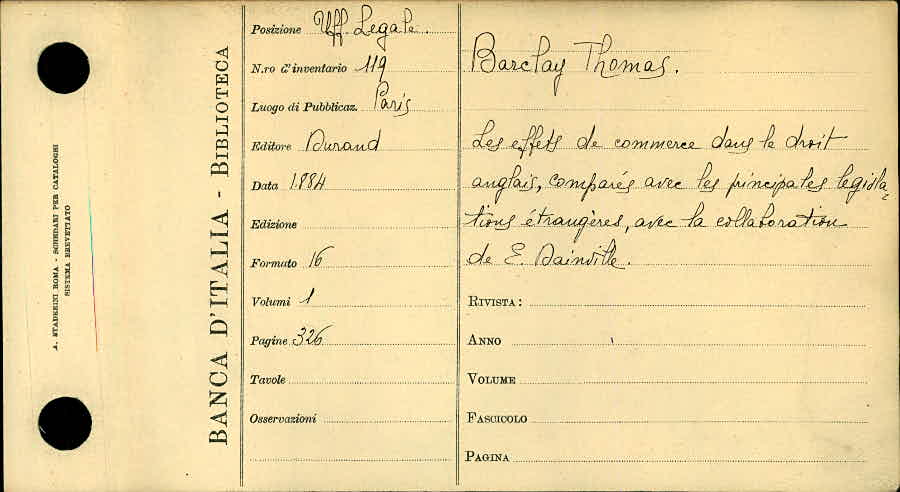 A. STADERINI ROMA - SCHEDARI PER CATALOGHI
SISTEMA BREVETTATO
BANCA D'ITALIA - BIBLIOTECA
Posizione Uff. Legale.
N.ro d'inventario 119
Luogo di Pubblicaz. Paris
Editore Durand
Data 1884
Edizione
Formato 16
Volumi 1
Pagine 326
Tavole
Osservazioni
Barclay Thomas.
Les effets de commerce dans le droit
anglais, comparés avec les principales législa=
tions étrangères, avec la collaboration
de E. Dainville.
RIVISTA:
ANNO
VOLUME
FASCICOLO
PAGINA